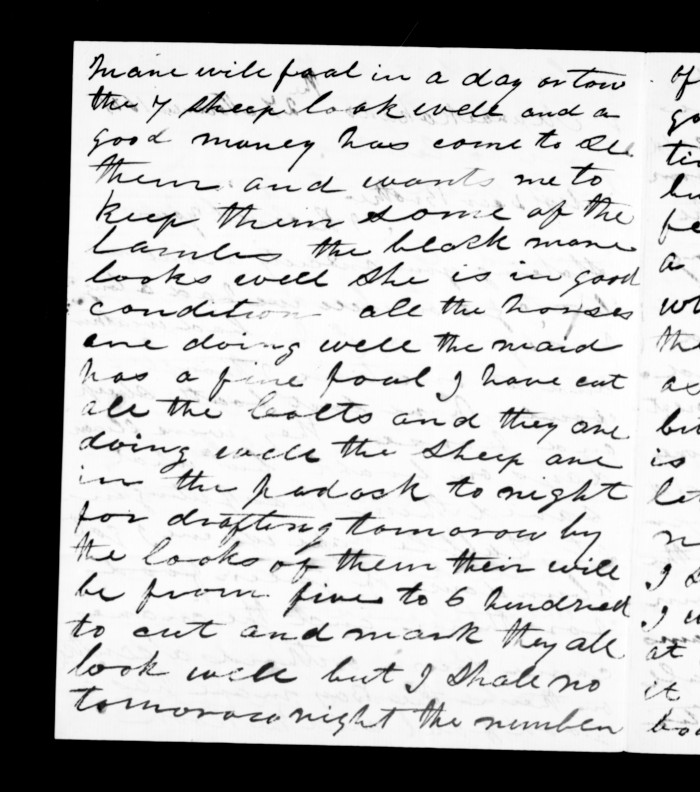 mare will foal in a day or tow
the 7 sheep look well and a
good maney has come to see
them and wants me to
keep them some of the
lambs the black mare
looks well she is in good
condition all the horses
are doing well the maid
has a fine foal I have cut
all the coalts and they are
doing well the sheep are
in the padock to night
for drafting tomorow by
the looks of them their will
be from five to 6 hundred
to cut and mark they all
look well but I shall no
tomorow night the number
of
go
tin
lu
fe
a
wh
the
as
bu
is
let
n
I
I w
at
it
bo